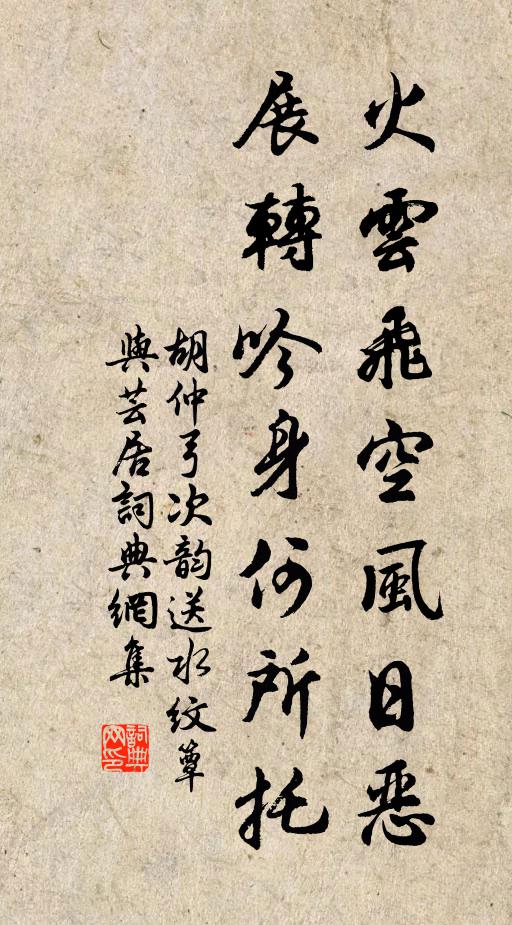 火雲飛空風日惡
展轉吟身何所托
胡仲弓次韵送水紋簟
與芸居詞典網集
詞典
网印